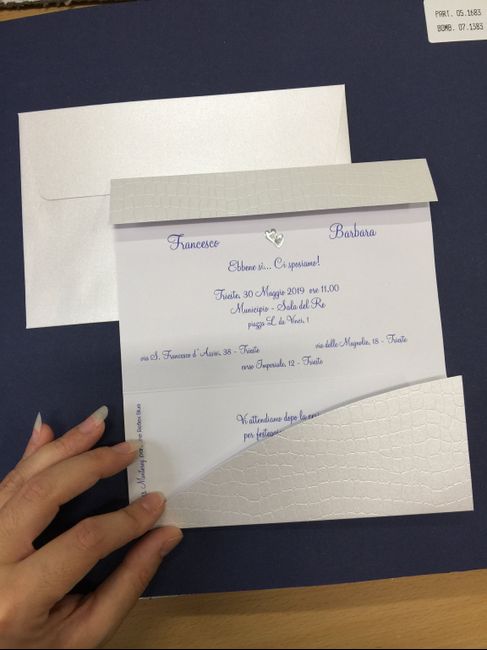 PART. 05.1683
BOMB. 07.1383
Francesco Barbara
Ebbene sì... Ci sposiamo!
Trieste, 30 Maggio 2019 ore 11.00
Municipio - Sala del Re
piazza L. da Vinci, 1
via S. Francesco d'Assisi, 38 - Trieste
via delle Magnolie, 18 - Trieste
corso Imperiale, 12 - Trieste
Vi attendiamo dopo la
per
Monterey Blue